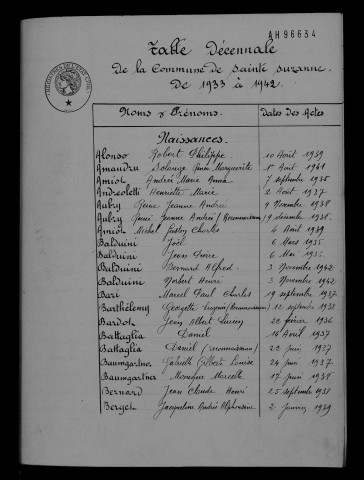 AH96634
Table Décennale
De la Commune de Sainte Suzanne.
De 1933 à 1942.
Noms & Prénoms. Dates Des Actes
Naissances.
Alonso Robert Philippe 10 Août 1939
Amandru Solange Marguerite 1 Août 1941
Amiot Andrée Marie 7 septembre 1935
Andreoletti Henriette Marie 2 Août 1937
Aubry Jeanne 9 Novembre 1938
Aubry Jeanne (Reconnaissance) 19 décembre 1938
Amiot Michel Charles 4 Août 1939
Balduini Joël 6 Mars 1935
Balduini Jean 6 Mai 1936
Balduini Bernard Alfred 3 Novembre 1942
Balduini Norbert Henri 3 Novembre 1942
Bari Marcel Paul Charles 19 septembre 1937
Barthélemy Georgette (Reconnaissance) 12 septembre 1938
Bardot Jean Albert Lucien 22 février 1936
Battaglia Daniel 14 Avril 1937
Battaglia Daniel (reconnaissance) 23 juin 1937
Baumgartner Gabrielle Louise 24 juin 1937
Baumgartner Monique Marcelle 17 juin 1938
Bernard Jean Claude Henri 25 septembre 1938
Berget Jacqueline Andrée Alphonsine 2 janvier 1939